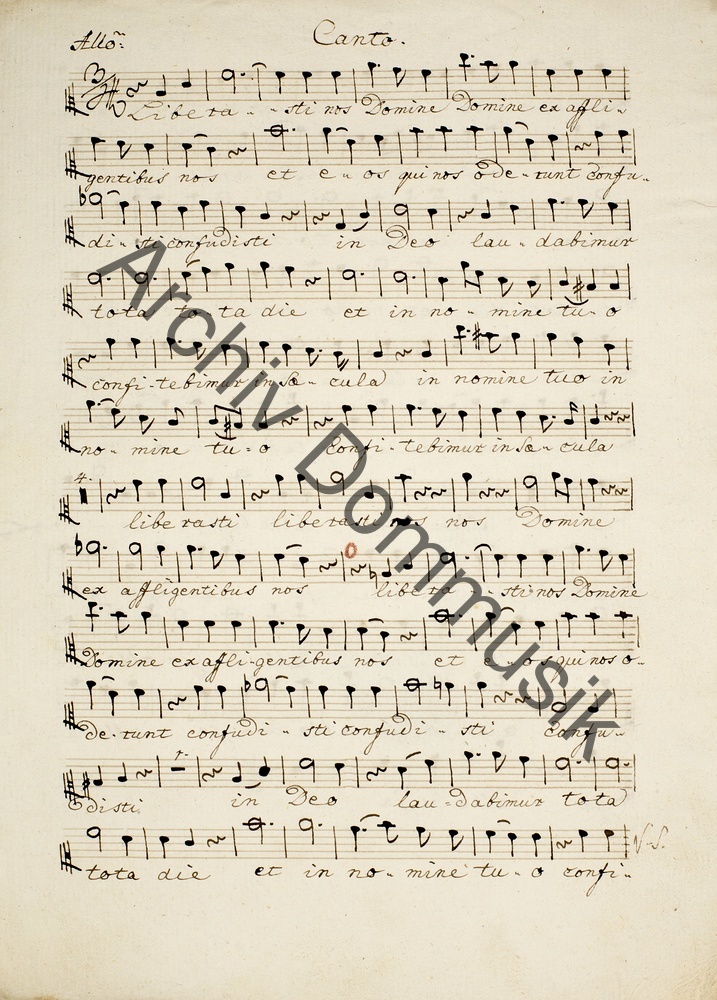 Canto.
Allo:
Libera - - sti nos Domine Domine ex affli -
gentibus nos et e - os qui nos ode - runt confu -
di - sti confudisti in Deo lau - dabimur
tota to - ta die et in no - mine tu - o
confi - tebimur in Sæ - cula in nomine tuo in
no - mine tu - o Confi - tebimur in Sæ - cula
4.
liberasti liberasti nos nos Domine
ex affligentibus nos libera - sti nos Domine
Domine ex affli - gentibus nos et e - os qui nos o -
de - runt confudi - sti confudi - sti confu -
1.
disti in Deo lau - dabimur tota
tota die et in no - mine tu - o confi -
V. S.
Archiv Dommusik